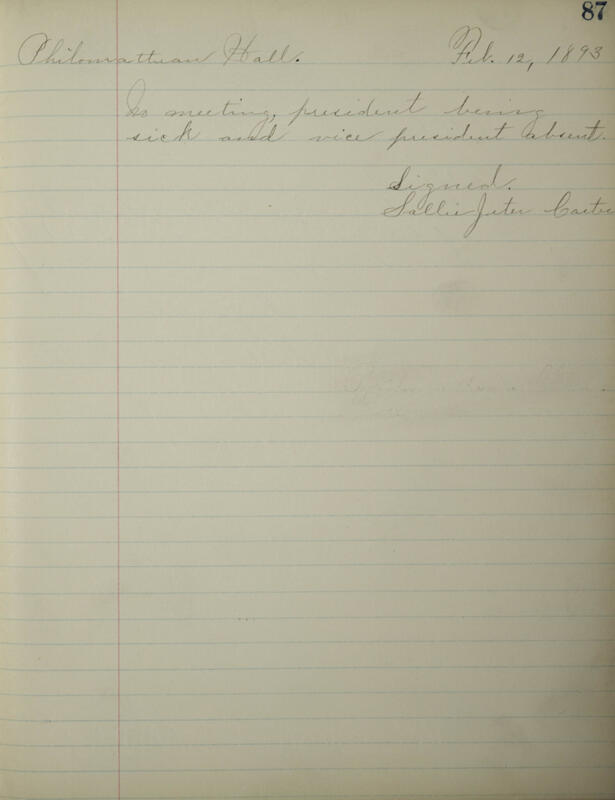 87
Philomathean Hall. Feb. 12, 1893
No meeting, president being
sick and vice president absent.
Signed.
Sallie Jeter Carter